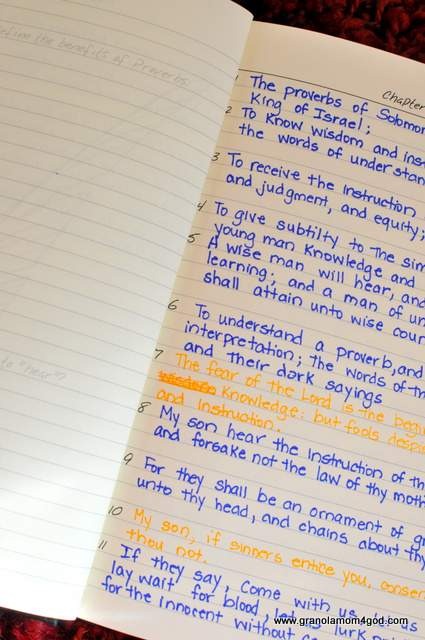 efine the benefits of Proverbs
to "hear"?
Chapter
1 The proverbs of Solomon
King of Israel;
2 To Know wisdom and ins
the words of understan
3 To receive the instruction
and judgment, and equity;
4 To give subtilty to the sim
young man Knowledge and
5 A wise man will hear, and
learning; and a man of un
shall attain unto wise coun
6 To understand a proverb, and
interpretation; the words of th
and their dark sayings
7 The fear of the Lord is the begin
wisdom Knowledge: but fools despis
and instruction.
8 My son hear the instruction of th
and forsake not the law of thy moth
9 For they shall be an ornament of gr
unto thy head, and chains about thy
10 My son, if sinners entice you, consen
thou not.
11 If they say, Come with us, let us
lay wait for blood, let us lurk
for the innocent without
www.granolamom4god.com